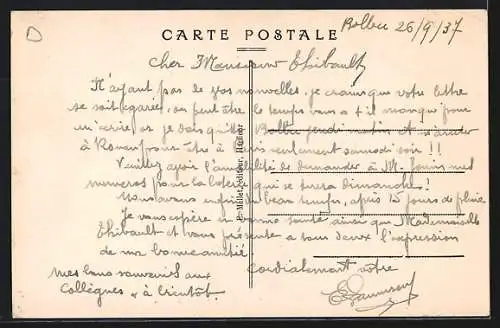 D
CARTE POSTALE
Bolbec 26/9/37
Cher Monsieur Thibault
N'ayant pas de vos nouvelles, je crains que votre lettre
se soit égarée, ou peut être le temps vous a t il manqué pour
m'écrire, or je dois quitter Bolbec jeudi matin et
à Rouen pour être à seulement samedi soir !!
Veuillez avoir l'amabilité de demander à M. Jouin mes
numéros pour la loterie qui se tirera Dimanche !
Nous avons enfin beau temps, après 15 jours de pluie
Je vous espère en bonne santé ainsi que Mademoiselle
Thibault et vous présente à tous deux l'expression
de ma bonne amitié
Cordialement vôtre
Mes bons souvenirs aux
Collègues et à bientôt.
Millet, éditeur,